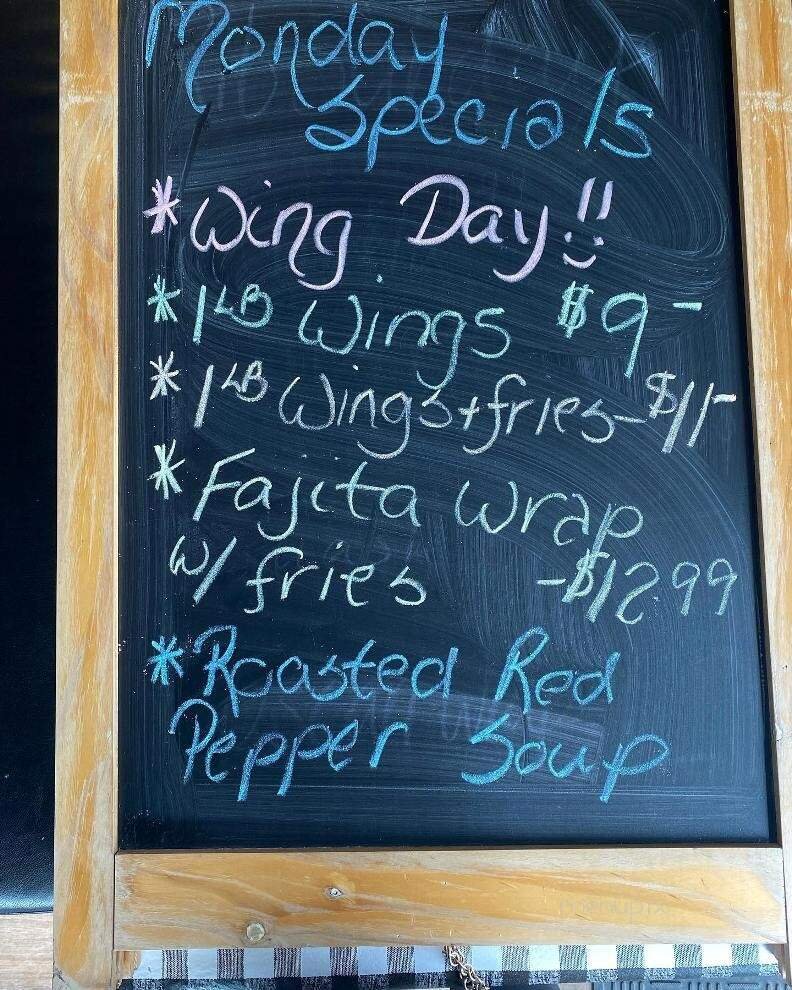 Monday
Specials
* Wing Day!!
* 1LB Wings $9-
* 1LB Wings + fries - $11-
* Fajita wrap
w/ fries - $12.99
* Roasted Red
Pepper Soup